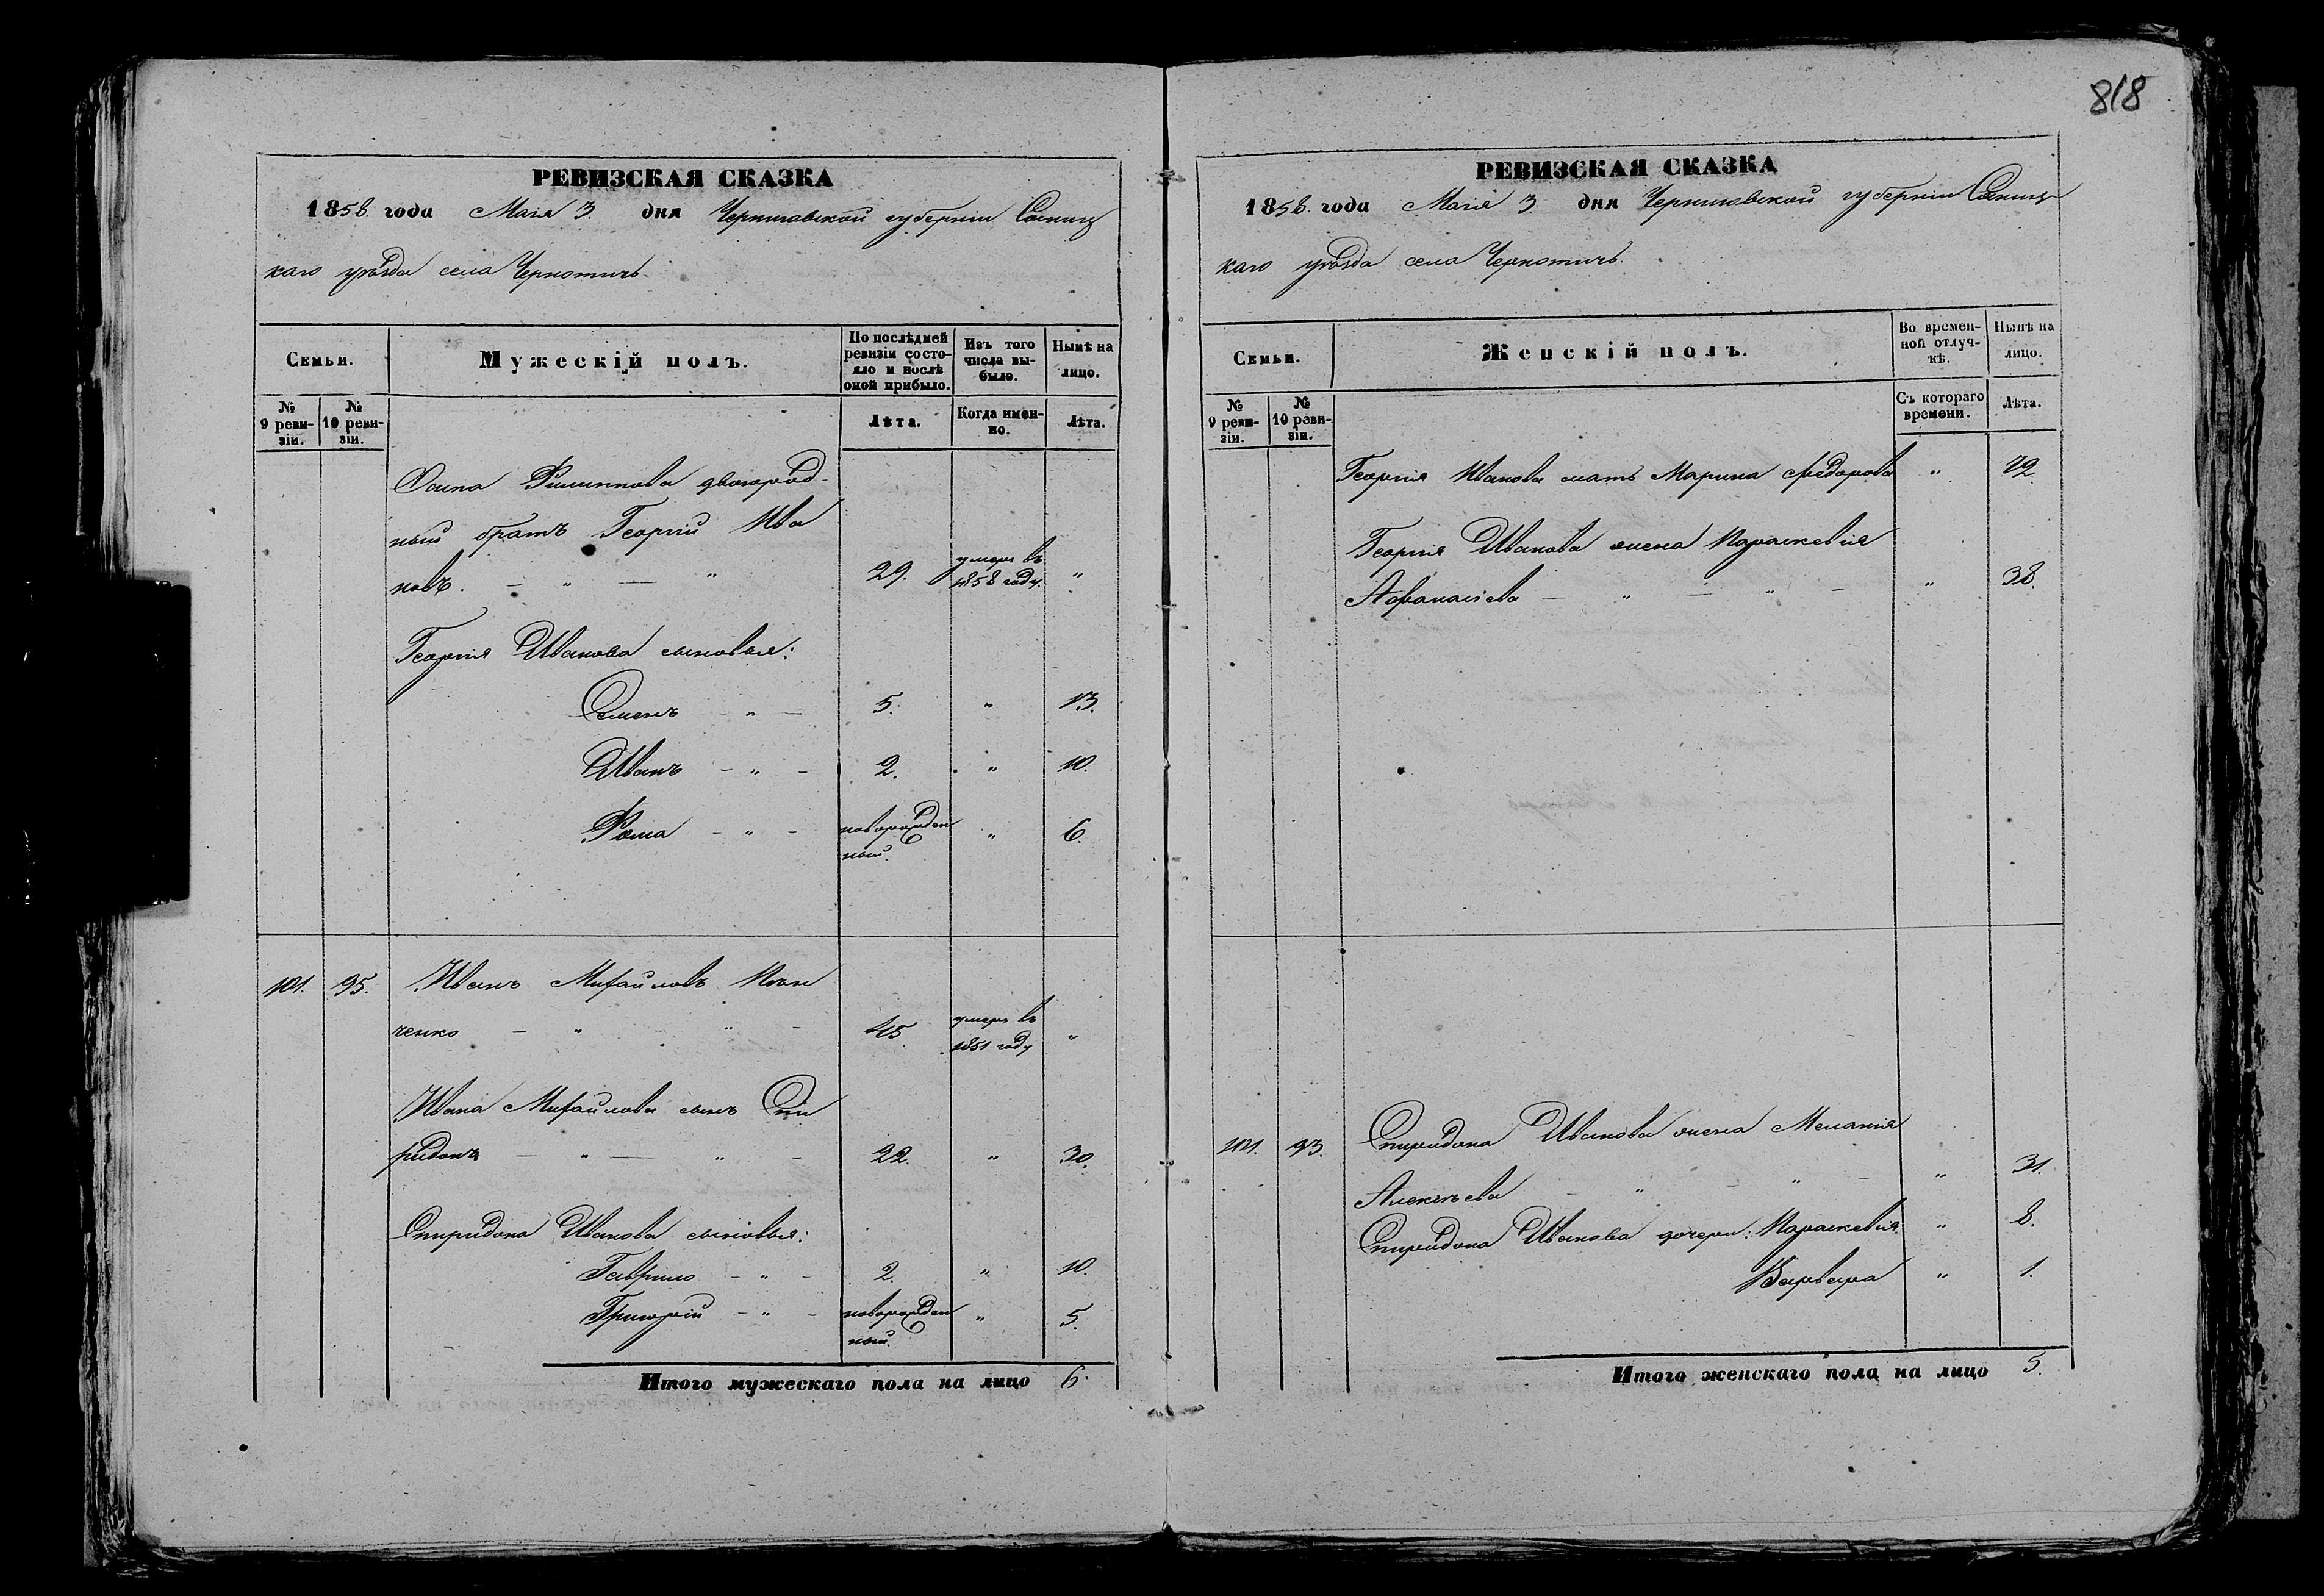 818
РЕВИЗСКАЯ СКАЗКА
1858. года Маія 3. дня Черниговской губерніи Сосниц
каго уѣзда села Чернотичь
Семьи.
Мужескій полъ.
По послѣдней ревизіи состояло и послѣ оной прибыло.
Изъ того числа выбыло.
Нынѣ на лицо.
№ 9 ревизіи.
№ 10 ревизіи.
Лѣта.
Когда именно.
Лѣта.
Осипа Филиппова двоюрод-
ный братъ Георгій Ива
новъ. — " — " 29. умеръ въ 1858 году. "
Георгія Иванова сыновья:
Семенъ - " - 5. " 13.
Иванъ - " - 2. " 10.
Фома - " - новорожден ный. " 6.
101. 95. Иванъ Михайловъ
ченко - " - " - 45. умеръ въ 1851 году "
Ивана Михайлова сынъ Спи
ридонъ — " — " - 22. " 30.
Спиридона Иванова сыновья:
Гаврило - " - 2. " 10.
Григорій - " - новорожден ный. " 5.
Итого мужескаго пола на лицо 6.
РЕВИЗСКАЯ СКАЗКА
1858. года Маія 3. дня Черниговской губерніи Сосниц
каго уѣзда села Чернотичь.
Семьи.
Женскій полъ.
Во временной отлучкѣ.
Нынѣ на лицо.
№ 9 ревизіи.
№ 10 ревизіи.
Съ котораго времени.
Лѣта.
Георгія Иванова мать Марина Федорова " 72.
Георгія Иванова жена Параскевія
Афанасіева — " — " - " 38.
101. 93. Спиридона Иванова жена Меланія
Алексѣева - " - " - " 31.
Спиридона Иванова дочери: Параскевія. " 8.
Варвара " 1.
Итого женскаго пола на лицо 5.